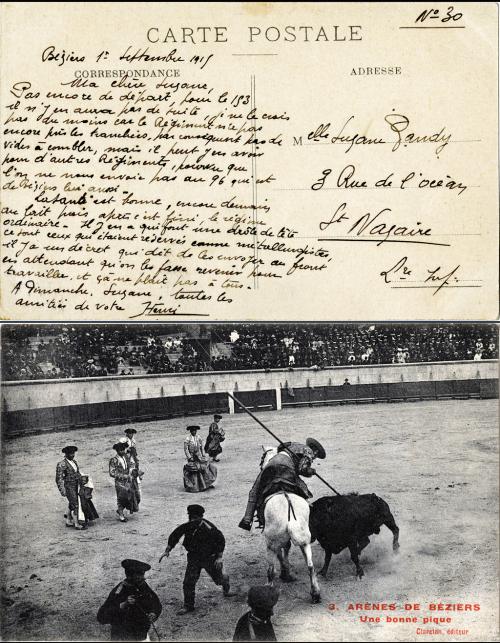 Nº 30
CARTE POSTALE
Béziers 1er Septembre 1915
CORRESPONDANCE
Ma chère Suzanne,
Pas encore de départ, pour le 153
il n'y en aura pas de suite, je ne le crois
pas du moins car le Régiment n'est pas
encore près les tranchées, par conséquent pas de
vides à combler, mais il peut y en avoir
pour d'autres Régiments, pourvu que
l'on ne nous envoie pas au 96 qui est
de Béziers lui aussi
La santé est bonne, encore demain
au lait puis après c'est fini, le régime
ordinaire. Il y en a qui font une drôle de tête
ce sont ceux qui étaient réservés comme métallurgistes,
il y a un décret qui dit de les envoyer au front
en attendant qu'on les fasse revenir pour
travailler, et ça ne plaît pas à tous.
A Dimanche, Suzanne, toutes les
amitiés de votre Henri
ADRESSE
Melle Suzanne Gandy
3 Rue de l'océan
St Nazaire
Lre Infre
3. ARÈNES DE BÉZIERS
Une bonne pique
éditeur